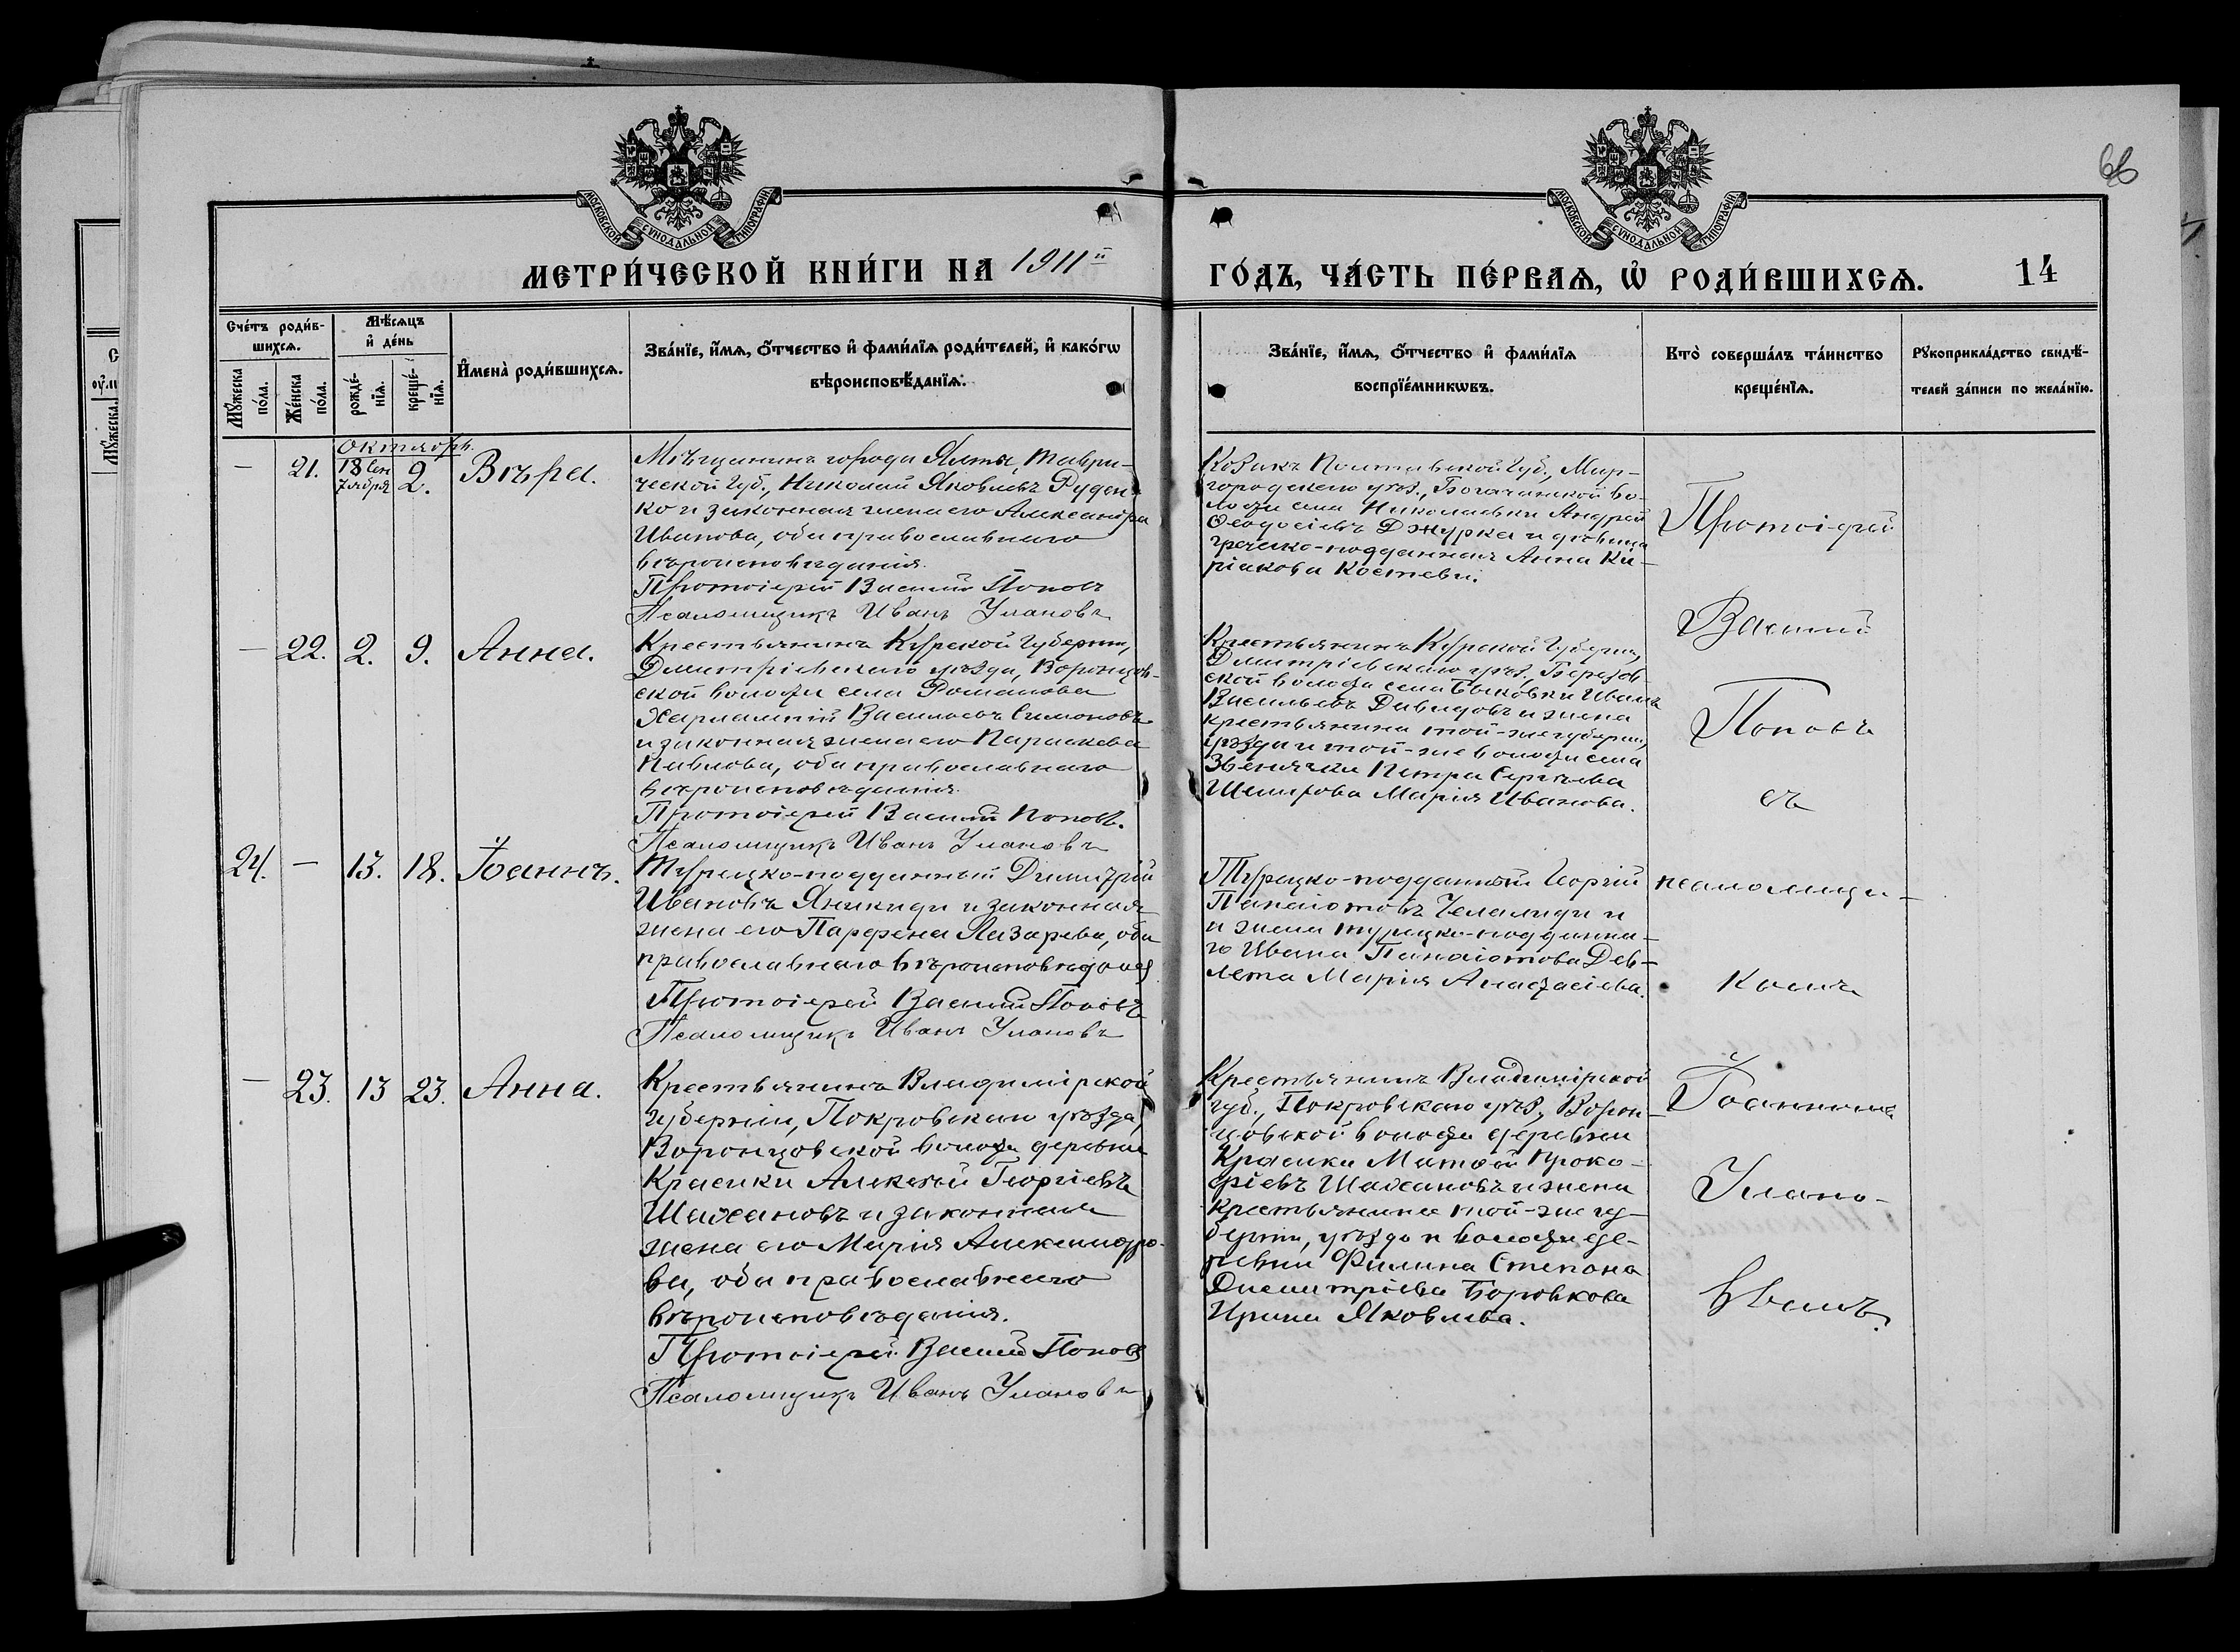 66
МОСКОВСКОЙ СѴНОДАЛЬНОЙ ТИПОГРАФІИ
МОСКОВСКОЙ СѴНОДАЛЬНОЙ ТИПОГРАФІИ
МЕТРИ́ЧЕСКОЙ КНИ́ГИ НА 1911й ГО́ДЪ, ЧА́СТЬ ПЕ́РВАѦ, Ѡ҆ РОДИ́ВШИХСѦ. 14
Сче́тъ роди́в-
шихсѧ.
Мꙋ́жеска по́ла.
Же́нска по́ла.
Мѣ́сѧцъ
и҆ де́нь
рожде́-
нїѧ.
креще́-
нїѧ.
И҆мена̀ роди́вшихсѧ.
Зва́нїе, и҆́мѧ, ѻ҆́тчество и҆ фами́лїѧ роди́телей, и҆ како́гѡ
вѣроисповѣ́данїѧ.
Зва́нїе, и҆́мѧ, ѻ҆́тчество и҆ фами́лїѧ
воспрїе́мникѡвъ.
Кто̀ соверша́лъ та́инство
креще́нїѧ.
Рꙋкоприкла́дство свидѣ́-
телей за́писи по жела́нїю.
Октябрь.
— 21. 18 Сен
тября 2. Вѣра.
Мѣщанинъ города Ялты, Таври-
ческой Губ., Николай Яковлевъ Руден-
ко и законная жена его Александра
Иванова, оба православнаго
вѣроисповѣданія.
Протоіерей Василій Поповъ
Псаломщикъ Иванъ Улановъ
Козакъ Полтавской Губ., Мир-
городскаго уѣз., Богачанской во-
лости села Николаевки Андрей
Ѳеодосіевъ Джурка и дѣвица
греческо-подданная Анна Ки-
ріакова Костеви.
— 22. 2. 9. Анна.
Крестьянинъ Курской Губерніи,
Дмитріевскаго уѣзда, Воронцов-
ской волости села Романова
Харлампій Васильевъ Симоновъ
и законная жена его Параскева
Павлова, оба православнаго
вѣроисповѣданія.
Протоіерей Василій Поповъ.
Псаломщикъ Иванъ Улановъ
Крестьянинъ Курской Губерніи,
Дмитріевскаго уѣз., Березов-
ской волости села Быковки Иванъ
Васильевъ Давидовъ и жена
крестьянина той-же губерніи,
уѣзда и той-же волости села
Звенячки Петра Сергѣева
Шемирова Марія Иванова.
24. — 13. 18. Іоаннъ.
Турецко-подданный Димитрій
Ивановъ Яникиди и законная
жена его Парѳена Лазарева, оба
православнаго вѣроисповѣданія
Протоіерей Василій Поповъ
Псаломщикъ Иванъ Улановъ
Турецко-подданный Георгій
Панаіотовъ Челалиди и
и жена турецко-поддана-
го Ивана Панаіотова Дев-
лета Марія Анастасіева.
— 23. 13 23. Анна.
Крестьянинъ Владимірской
губерніи, Покровскаго уѣзда,
Воронцовской волости деревни
Красики Алексѣй Георгіевъ
Шахановъ и законная
жена его Марія Александро-
ва, оба православнаго
вѣроисповѣданія.
Протоіерей Василій Поповъ
Псаломщикъ Иванъ Улановъ
Крестьянинъ Владимірской
губ., Покровскаго уѣз., Ворон-
цовской волости деревни
Красики Матѳей Проко-
фіевъ Шахановъ и жена
крестьянина той-же гу-
берніи, уѣзда и волости де-
ревни Филина Степана
Димитріева Боровкова
Ирина Яковлева.
Протоіерей
Василій
Поповъ
съ
псаломщи-
комъ
Іоанномъ
Улано-
вымъ.